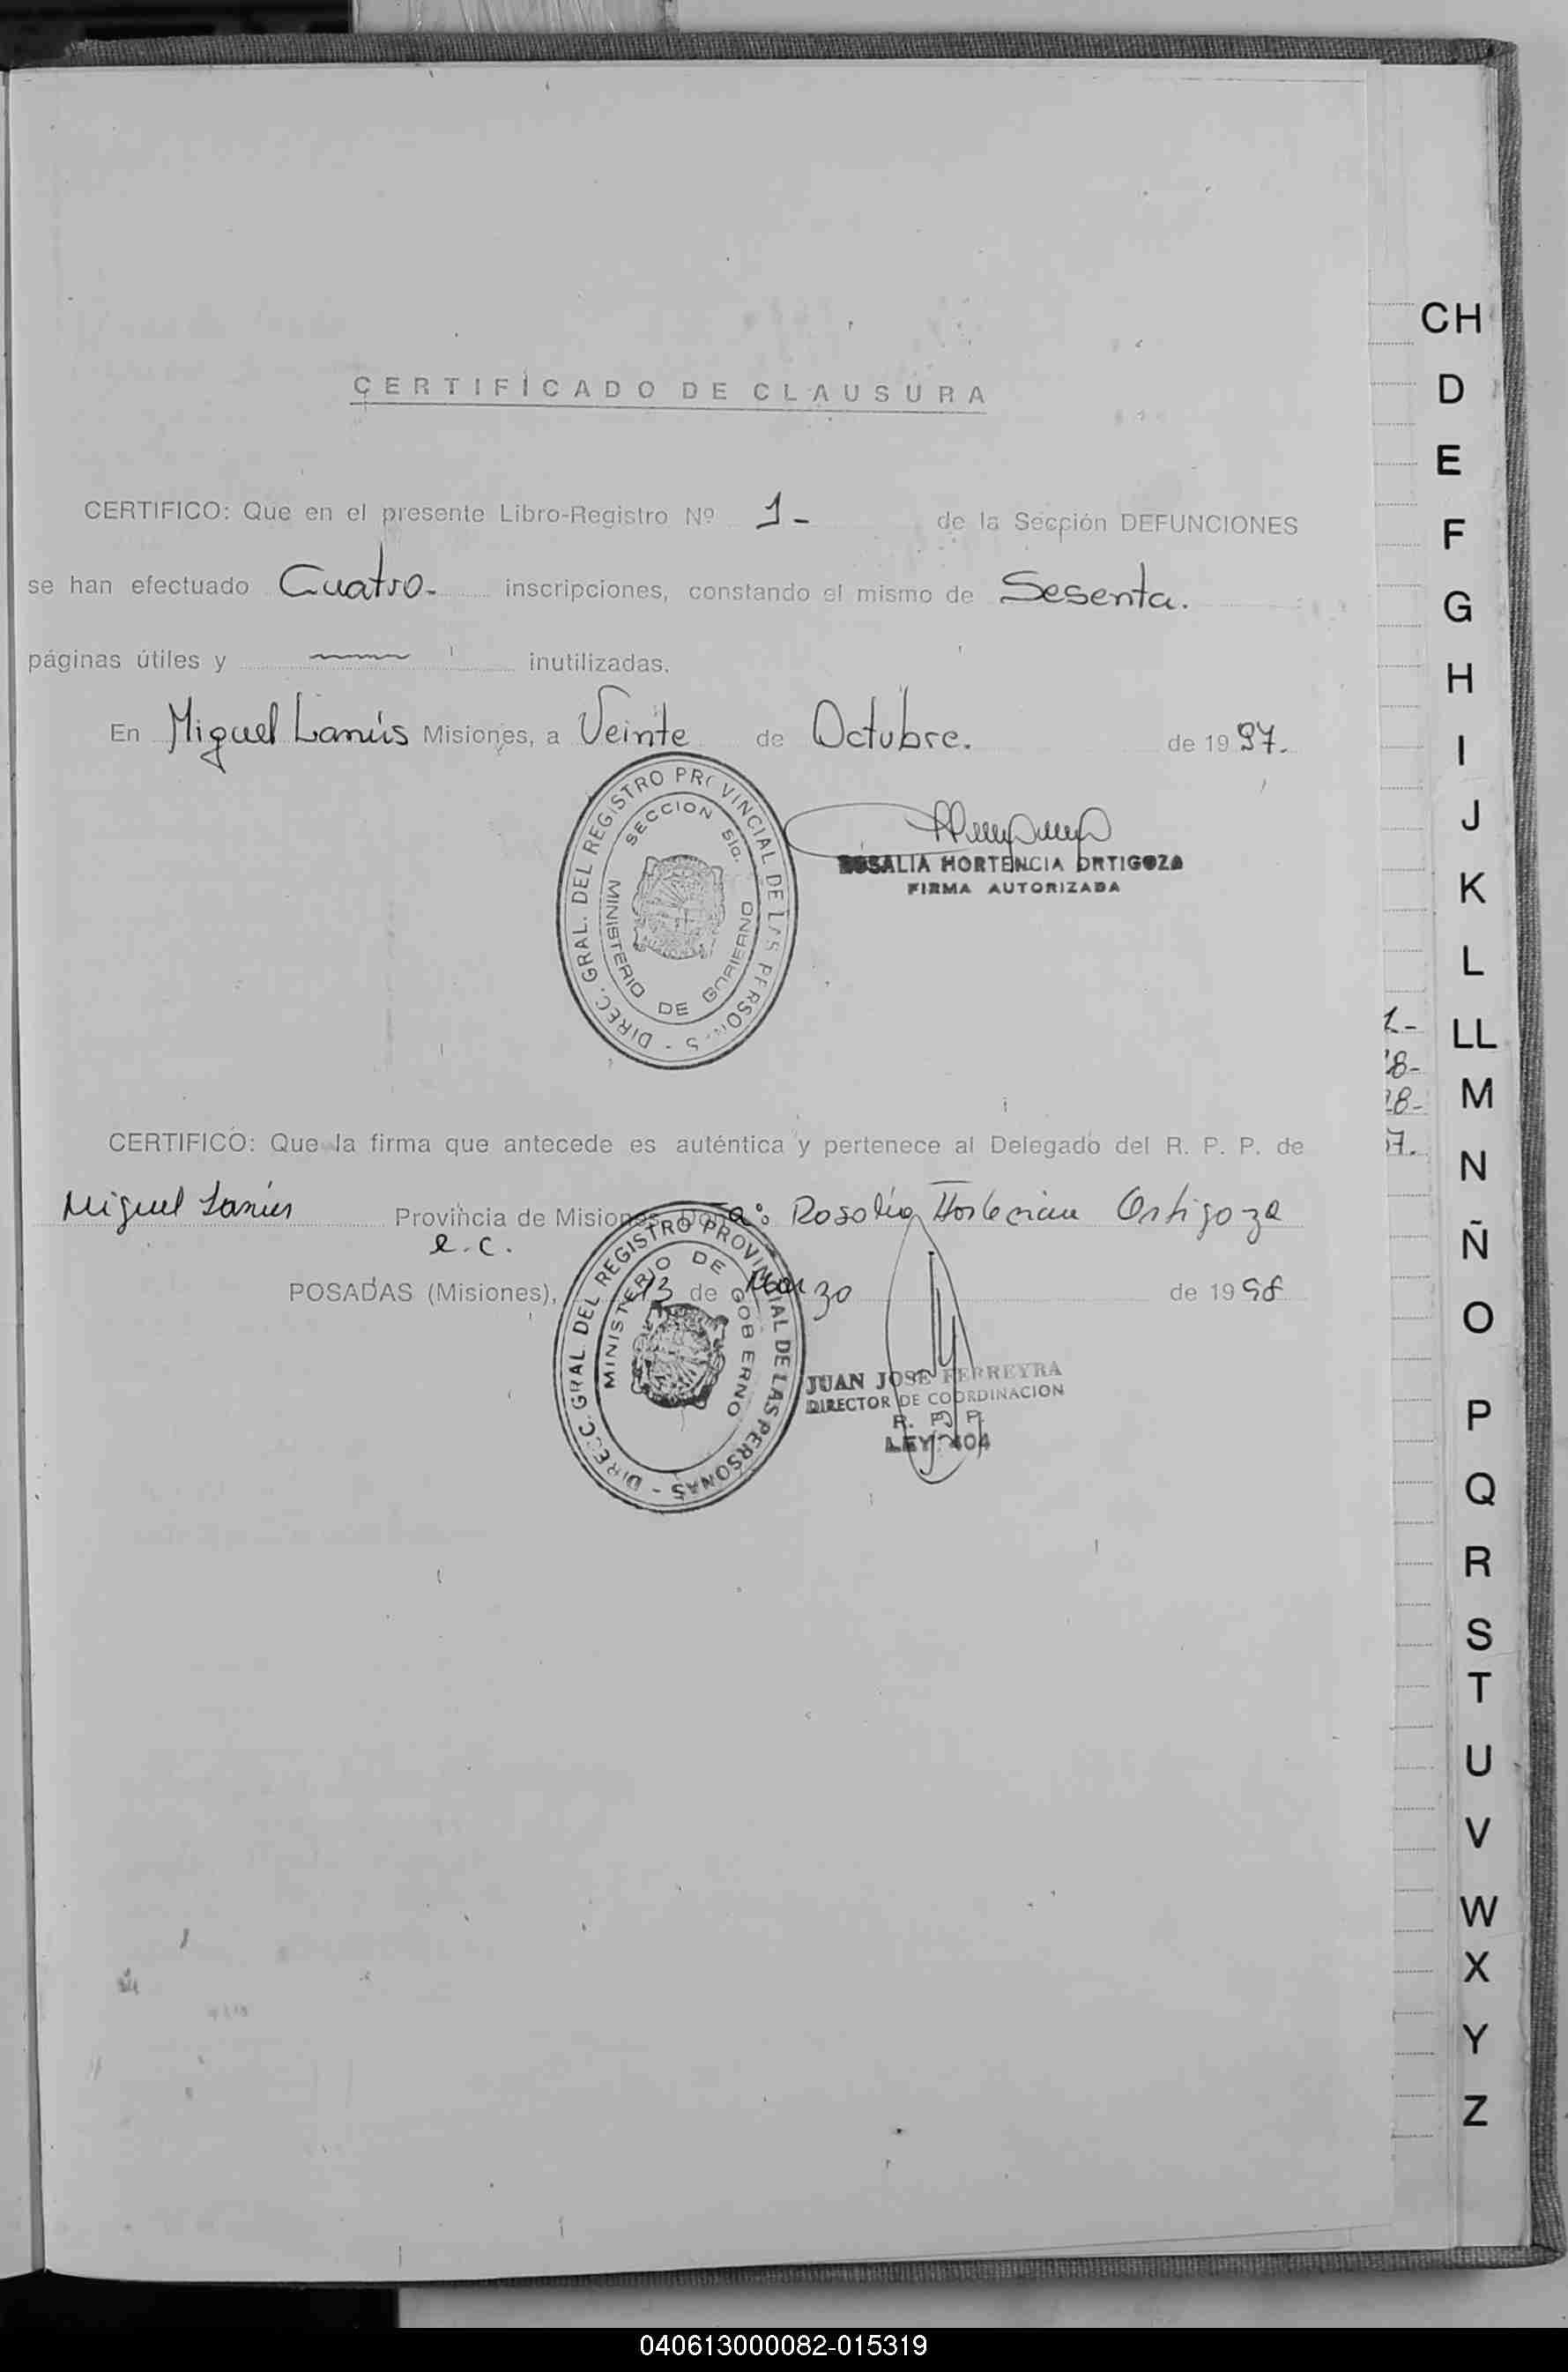 CERTIFICADO DE CLAUSURA
CERTIFICO: Que en el presente Libro-Registro Nº 1- de la Sección DEFUNCIONES
se han efectuado Cuatro- inscripciones, constando el mismo de Sesenta.
páginas útiles y inutilizadas.
En Miguel Lanús Misiones, a Veinte de Octubre. de 1997.
DIREC. GRAL. DEL REGISTRO PROVINCIAL DE LAS PERSONAS -
SECCION 51a.
MINISTERIO DE GOBIERNO
ROSALIA HORTENCIA ORTIGOZA
FIRMA AUTORIZADA
CERTIFICO: Que la firma que antecede es auténtica y pertenece al Delegado del R. P. P. de
Miguel Lanús Provincia de Misiones, Doña: Rosalia Hortencia Ortigoza
e.c.
POSADAS (Misiones), 13 de Marzo de 1998
DIREC. GRAL. DEL REGISTRO PROVINCIAL DE LAS PERSONAS -
MINISTERIO DE GOBIERNO
JUAN JOSE FERREYRA
DIRECTOR DE COORDINACION
R. P. P.
LEY 404
CH
D
E
F
G
H
I
J
K
L
1-
LL
8-
28-
M
7.
N
Ñ
O
P
Q
R
S
T
U
V
W
X
Y
Z
040613000082-015319